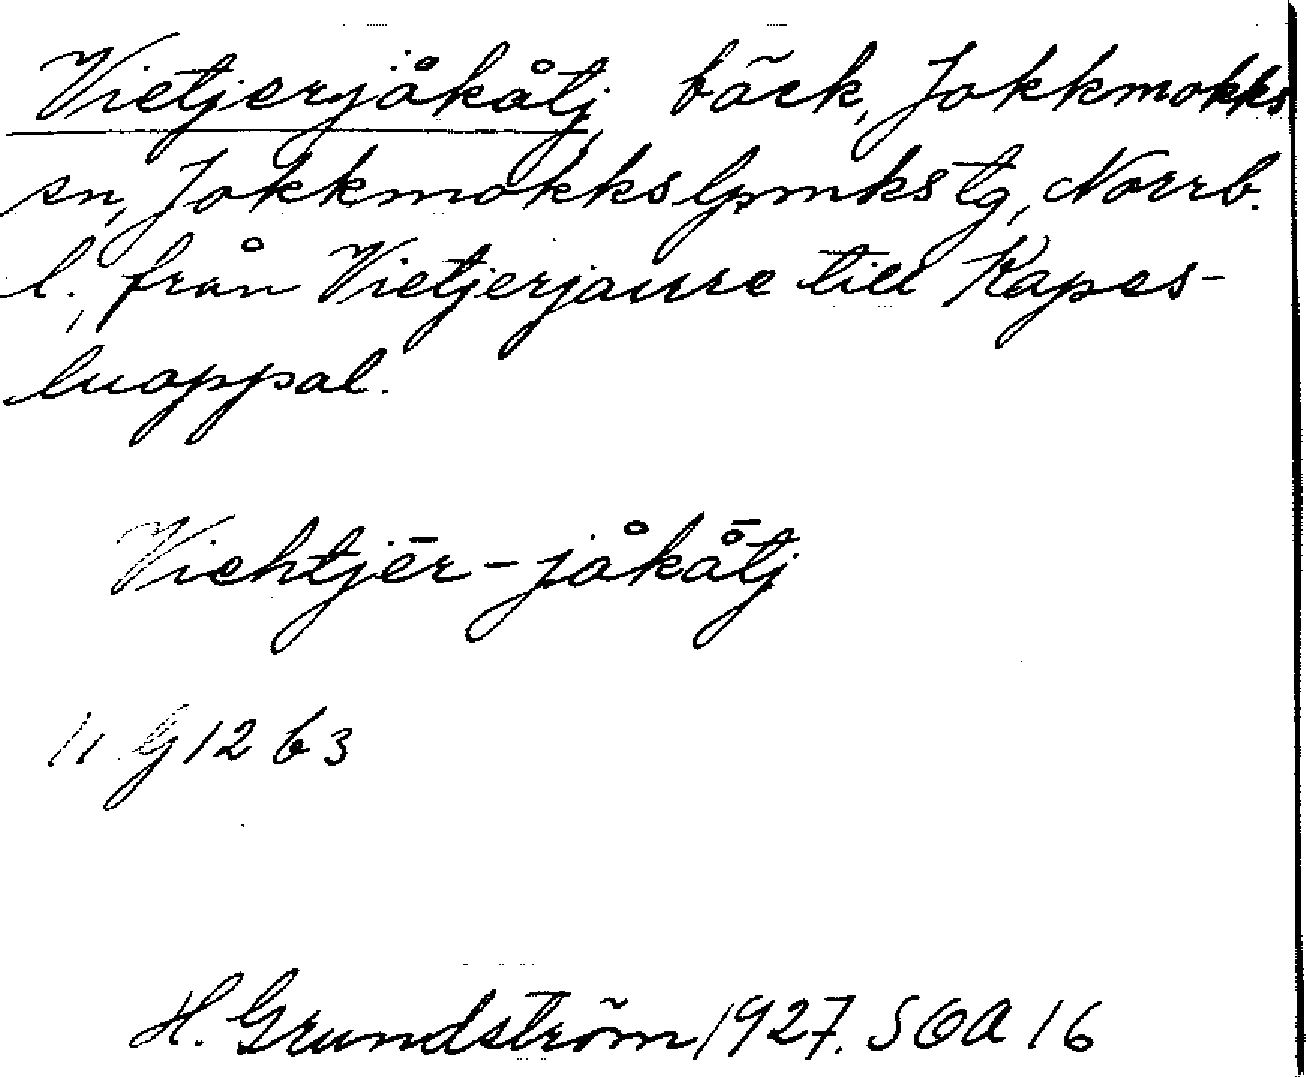 Vietjerjåkåtj, bäck, Jokkmokks
sn, Jokkmokks lpmks tg, Norrb.
l., från Vietjerjaure till Kapes-
luoppal.
Viehtjēr-jåkå̄tj
11 G 12 b 3
H. Grundström 1927. SOA 16